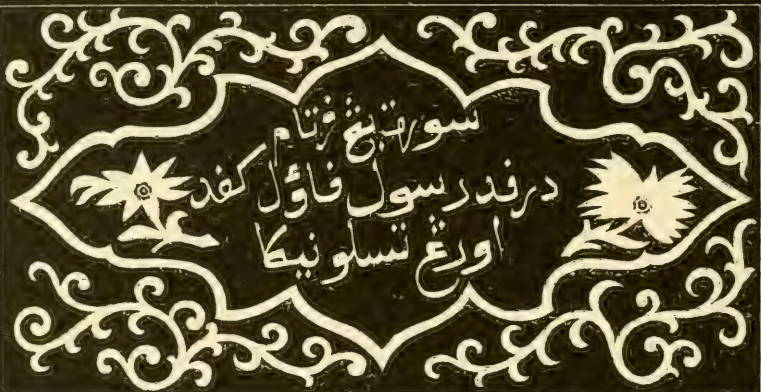 سورة يڠ ڤرتام
درفد رسول فاؤل كفد
اورڠ تسلونيكا